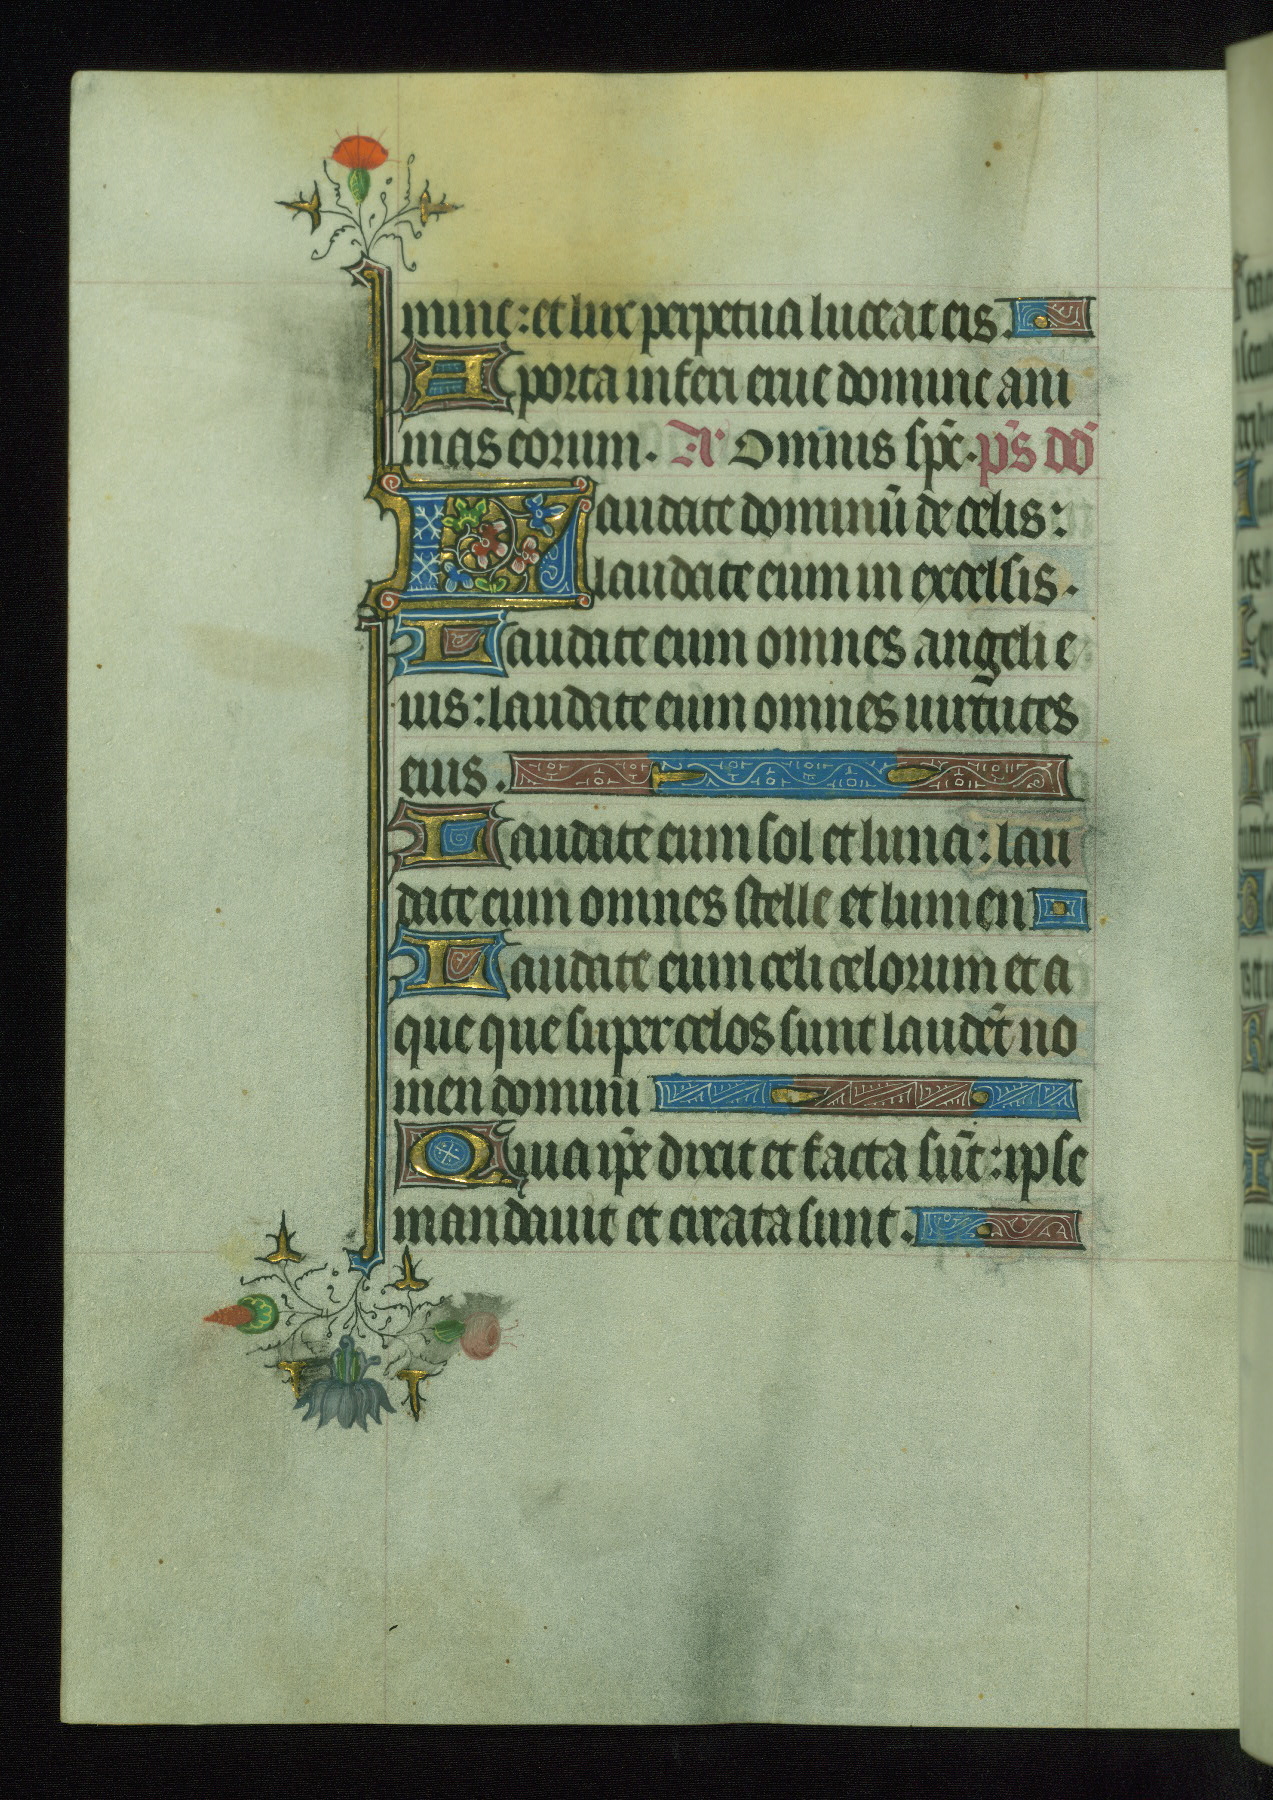 mine: et lux perpetua luceat eis.
A porta inferi erue domine ani
mas eorum. Añ Omnis sp̄c. p̄s dd̄
Laudate dominū de celis:
laudate eum in excelsis.
Laudate eum omnes angeli e
ius: laudate eum omnes uirtutes
eius.
Laudate eum sol et luna: lau
date eum omnes stelle et lumen
Laudate eum celi celorum et a
que que super celos sunt laudēt no
men domini
Quia ip̄e dixit et facta sūt: ipse
mandauit et creata sunt.